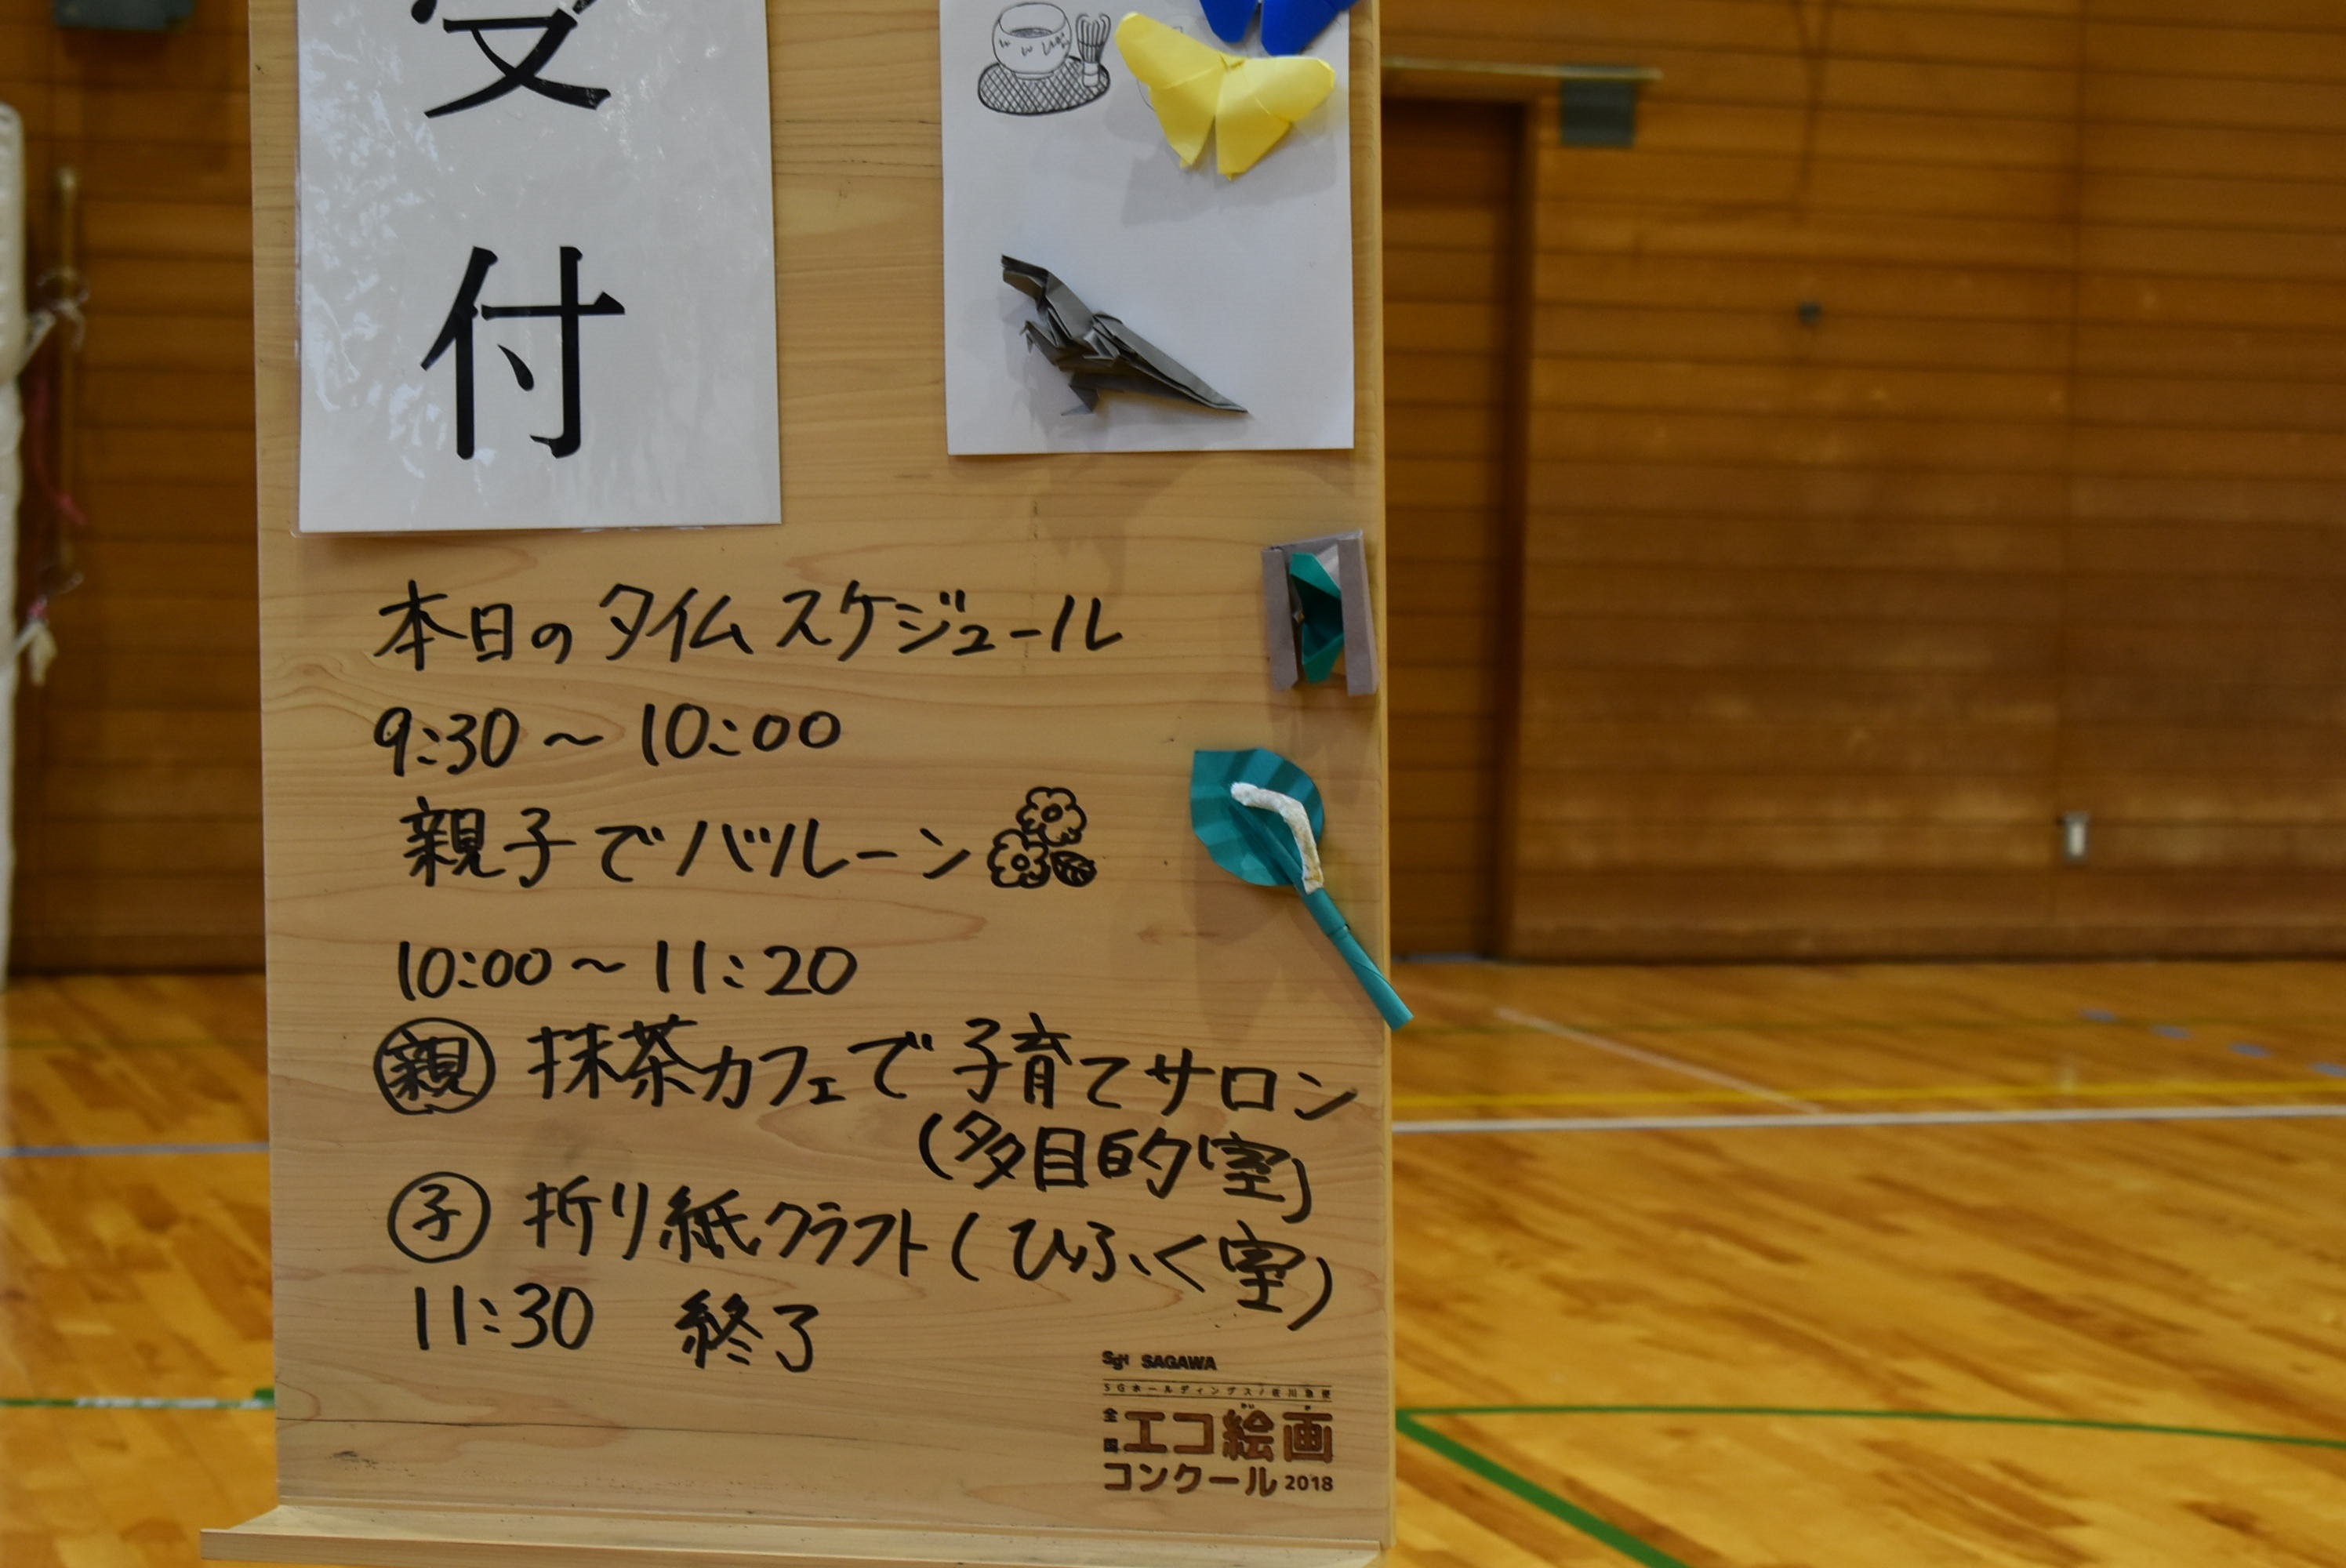 受
付
本日のタイムスケジュール
9:30～10:00
親子でバルーン
10:00～11:20
親 抹茶カフェで子育てサロン
(多目的室)
子 折り紙クラフト(ひふく室)
11:30 終了
SGH SAGAWA
SGホールディングス/佐川急便
全国エコ絵画
コンクール2018